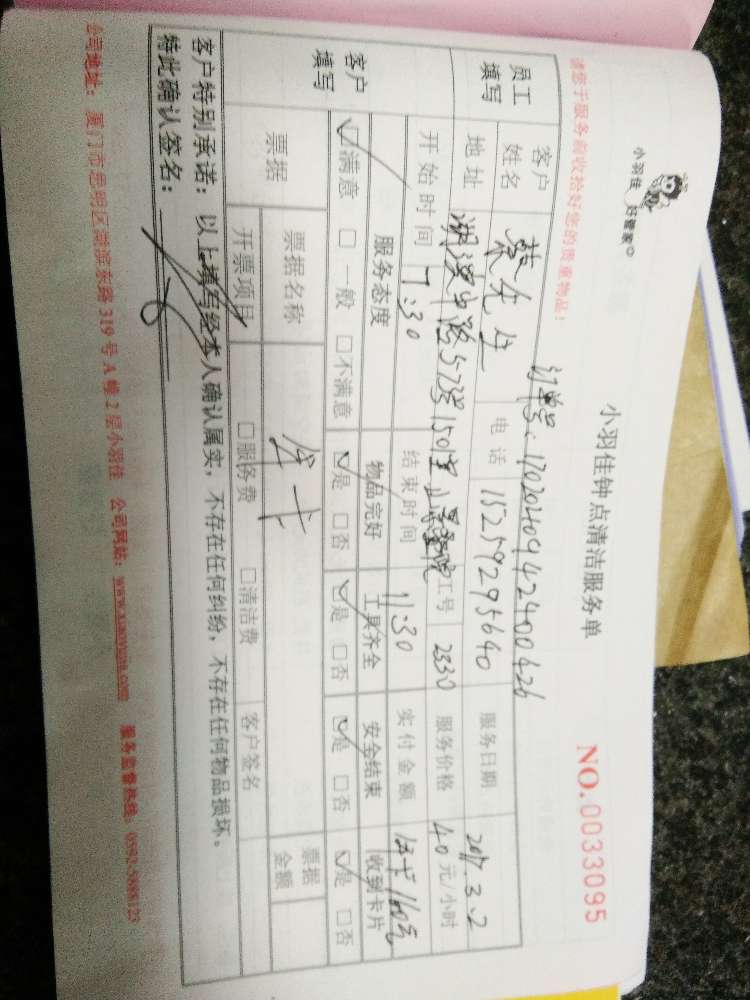 小羽佳 好管家
小羽佳钟点清洁服务单
NO.0033095
请您于服务前收拾好您的贵重物品!
订单号:1702040942400426
员工填写 客户姓名 蔡先生 电话 15259295640 服务日期 2017.3.2
地址 湖滨中路573号1501室 工号 2330 服务价格 40元/小时
开始时间 7:30 结束时间 11:30 实付金额 160元
客户填写 服务态度 物品完好 工具齐全 安全结束 收到卡片
☑满意 □一般 □不满意 ☑是 □否 ☑是 □否 ☑是 □否 ☑是 □否
票据 票据名称 票据金额
开票项目 □服务费 □清洁费 客户签名
客户特别承诺:以上填写经本人确认属实,不存在任何纠纷,不存在任何物品损坏。
特此确认签名:
公司地址:厦门市思明区湖滨东路319号A幢2层小羽佳 公司网站:www.xiaoyujia.com 服务监督热线:0592-5888123